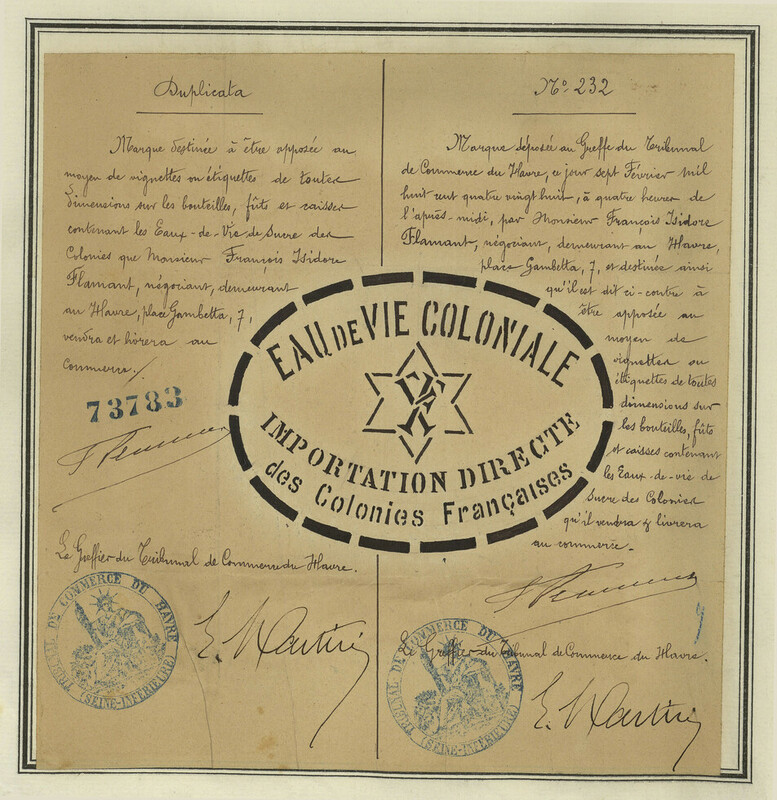 Duplicata
Marque destinée à être apposée au
moyen de vignettes ou étiquettes de toutes
dimensions sur les bouteilles, fûts et caisses
contenant les Eaux-de-Vie de Sucre des
Colonies que Monsieur François Isidore
Flamant, négociant, demeurant
au Havre, place Gambetta, 7,
vendra et livrera au
commerce.
73783
Le Greffier du Tribunal de Commerce du Havre.
TRIBUNAL DE COMMERCE DU HAVRE
(SEINE-INFÉRIEURE)
No. 232
Marque déposée au Greffe du Tribunal
de Commerce du Havre, ce jour sept Février mil
huit cent quatre vingt huit, à quatre heures de
l'après-midi, par Monsieur François Isidore
Flamant, négociant, demeurant au Havre,
place Gambetta, 7, et destinée ainsi
qu'il est dit ci-contre à
être apposée au
moyen de
vignettes ou
étiquettes de toutes
dimensions sur
les bouteilles, fûts
et caisses contenant
les Eaux-de-vie de
Sucre des Colonies
qu'il vendra & livrera
au commerce.
Le Greffier du Tribunal de Commerce du Havre.
TRIBUNAL DE COMMERCE DU HAVRE
(SEINE-INFÉRIEURE)
EAU DE VIE COLONIALE
IMPORTATION DIRECTE
des Colonies Françaises